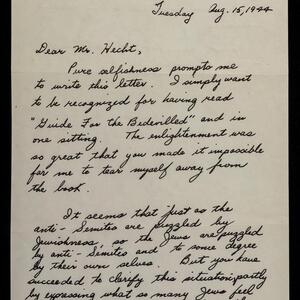 Tuesday Aug. 15, 1944
Dear Mr. Hecht,
Pure selfishness prompts me
to write this letter. I simply want
to be recognized for having read
"Guide For the Bedevilled" and in
one sitting. The enlightenment was
so great that you made it impossible
for me to tear myself away from
the book.
It seems that just as the
anti-Semites are puzzled by
Jewishness, so the Jews are puzzled
by anti-Semites and to some degree
by their own selves. But you have
succeeded to clarify this situation, partly
by expressing what so many Jews feel